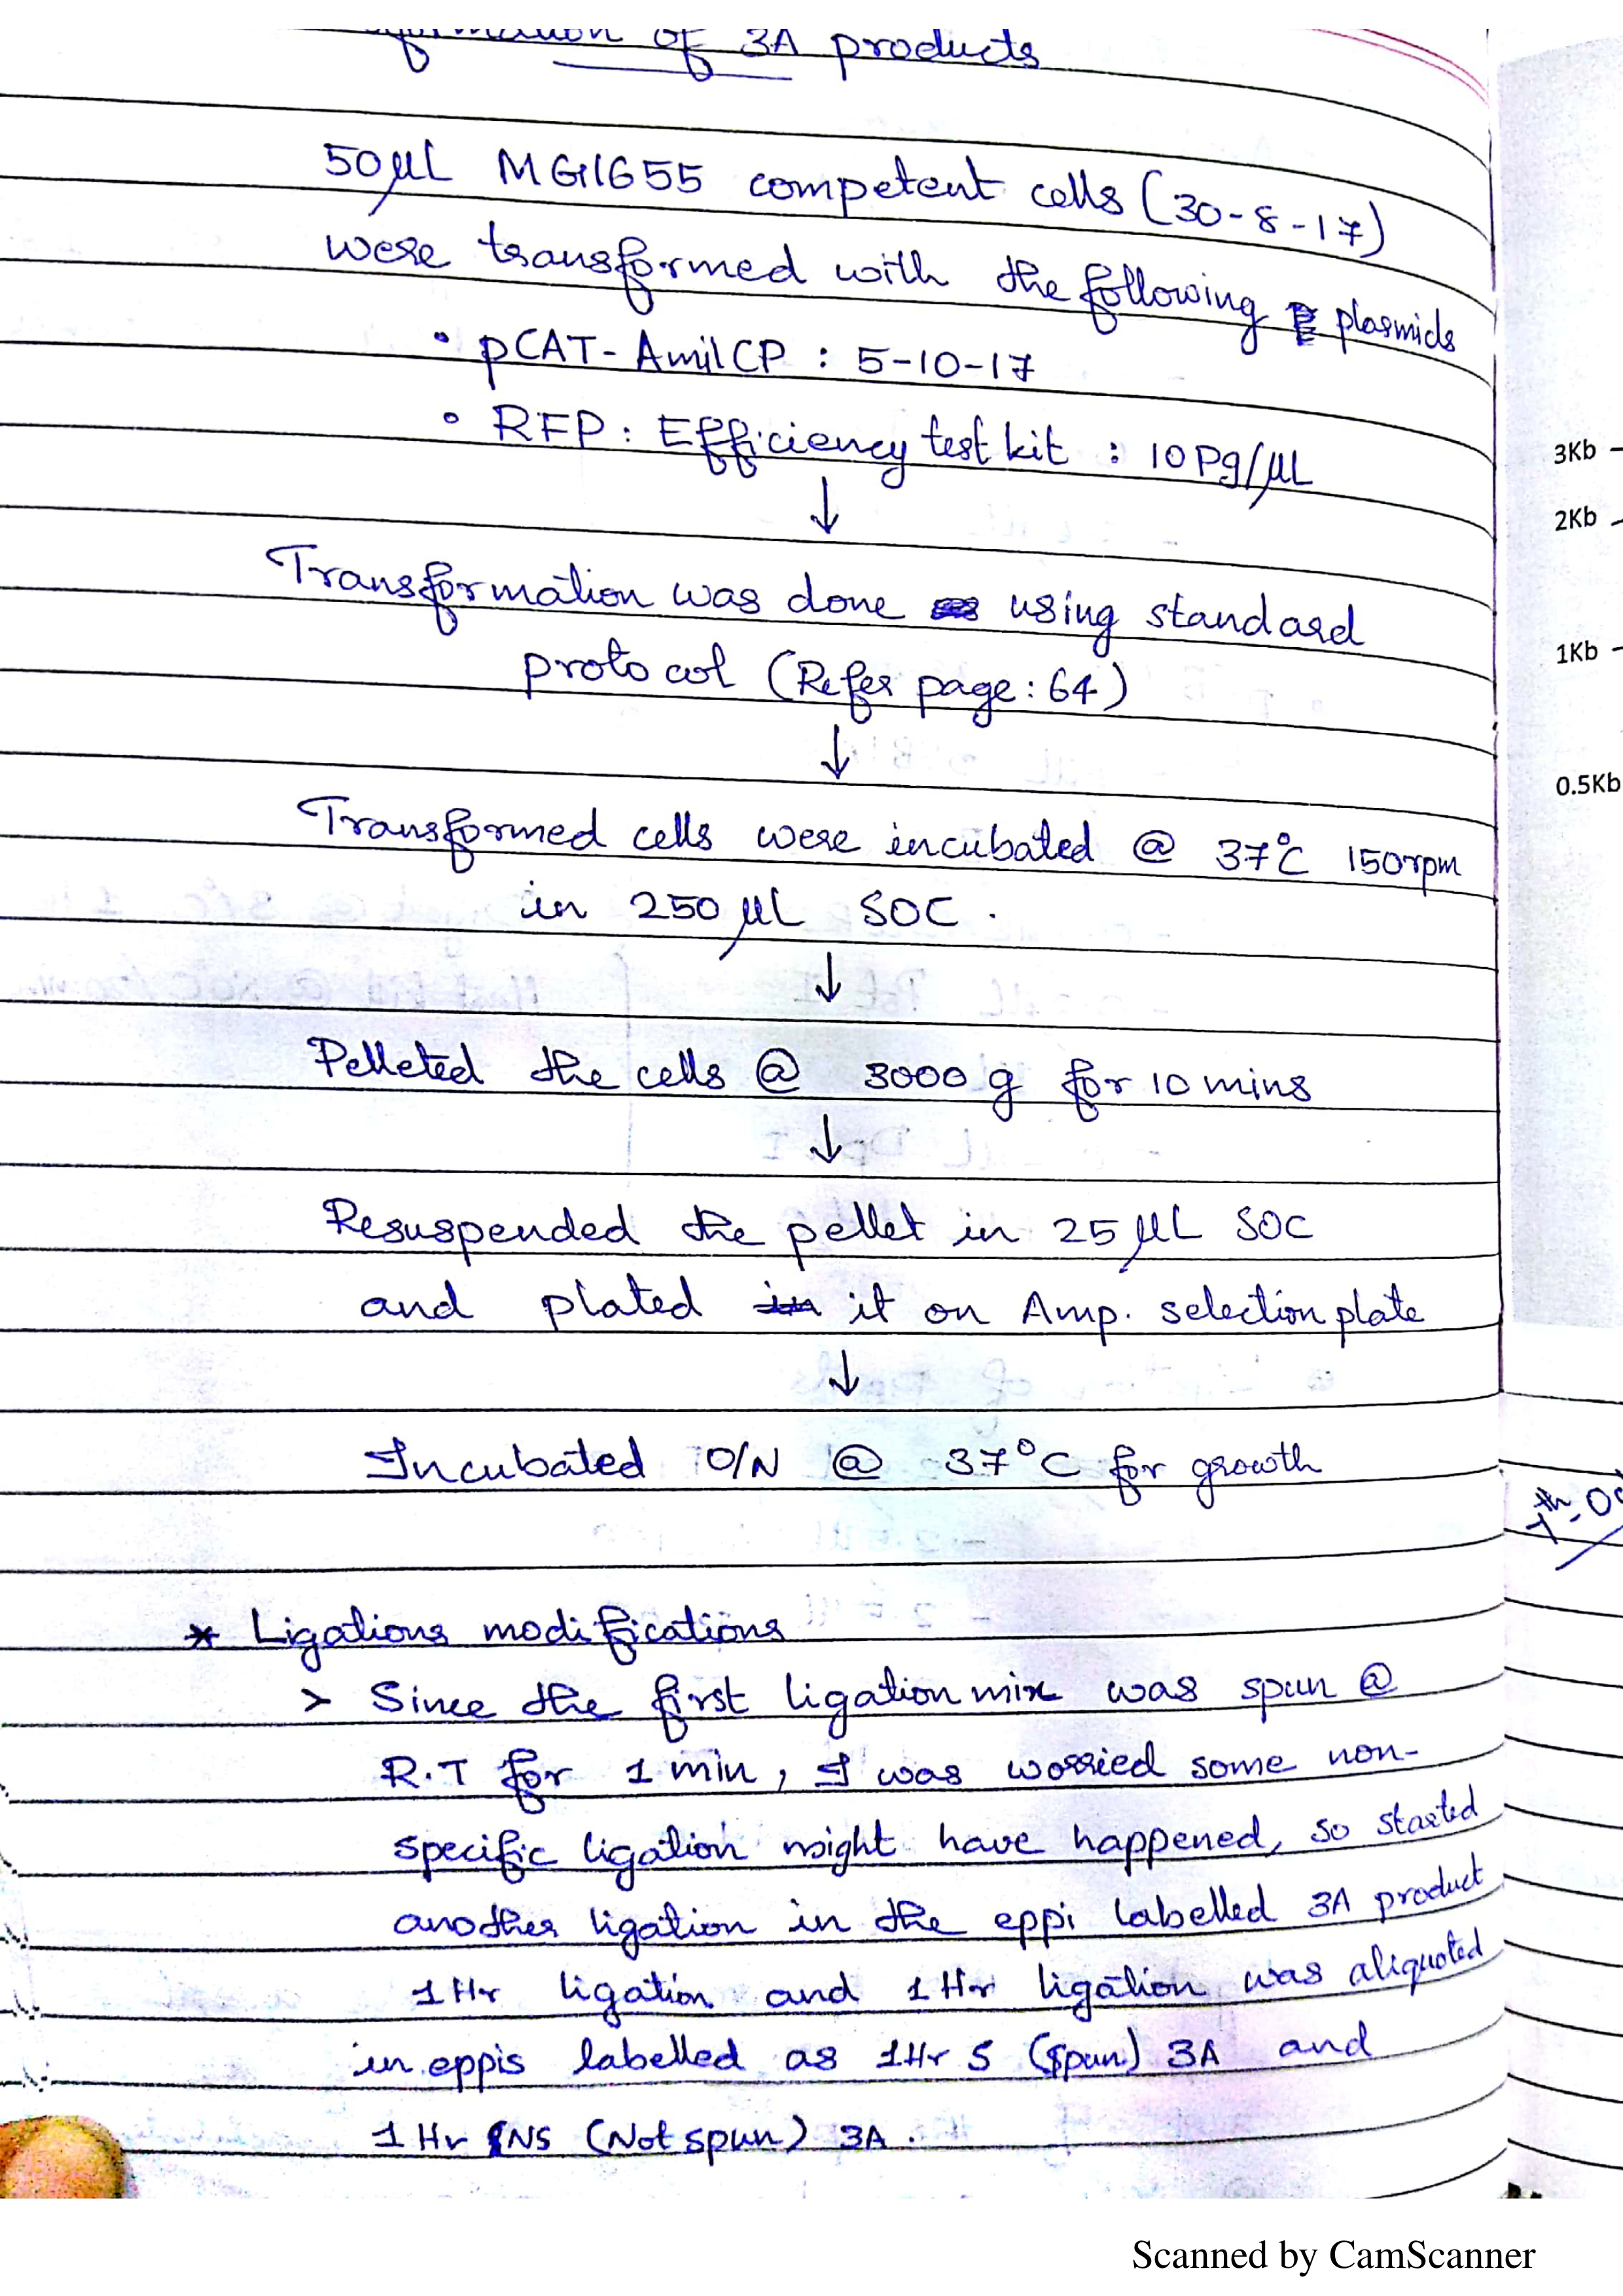 of 3A products
50µL MG1655 competent cells (30-8-17)
were transformed with the following plasmids
• pCAT-AmilCP : 5-10-17
• RFP: Efficiency test kit : 10Pg/µL
↓
Transformation was done using standard
protocol (Refer page: 64)
↓
Transformed cells were incubated @ 37°C 150rpm
in 250 µL SOC.
↓
Pelleted the cells @ 3000 g for 10 mins
↓
Resuspended the pellet in 25 µL SOC
and plated it on Amp. selection plate
↓
Incubated O/N @ 37°C for growth
* Ligations modifications
> Since the first ligation mix was spun @
R.T for 1 min, I was worried some non-
specific ligation might have happened, so started
another ligation in the eppi labelled 3A product
1Hr ligation and 1Hr ligation was aliquoted
in eppis labelled as 1Hr S (spun) 3A and
1Hr NS (Not spun) 3A.
3Kb
2Kb
1Kb
0.5Kb
Scanned by CamScanner